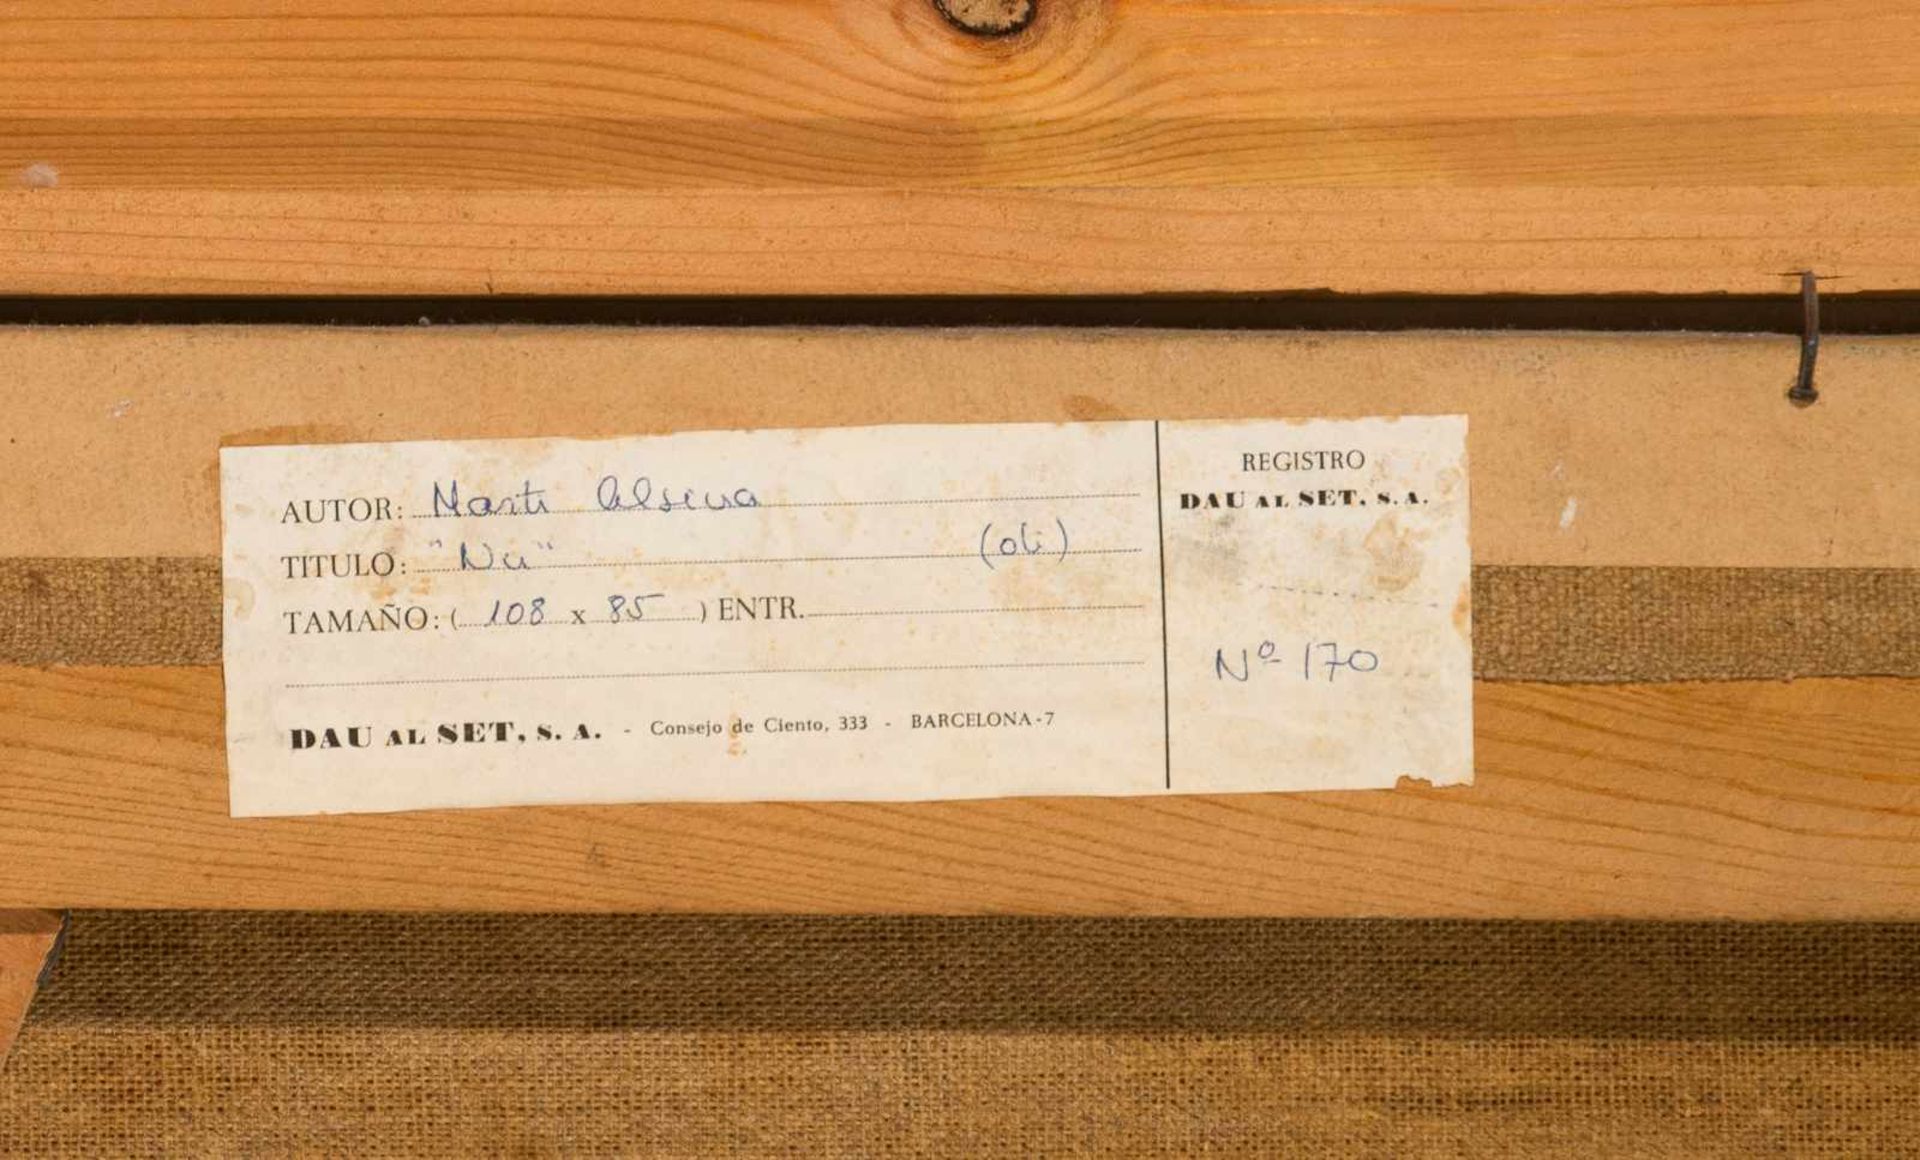 AUTOR: Marti Alsina
TITULO: "Nu" (oli)
TAMAÑO: ( 108 x 85 ) ENTR.
DAU AL SET, S. A. - Consejo de Ciento, 333 - BARCELONA-7
REGISTRO
DAU AL SET, S. A.
Nº 170